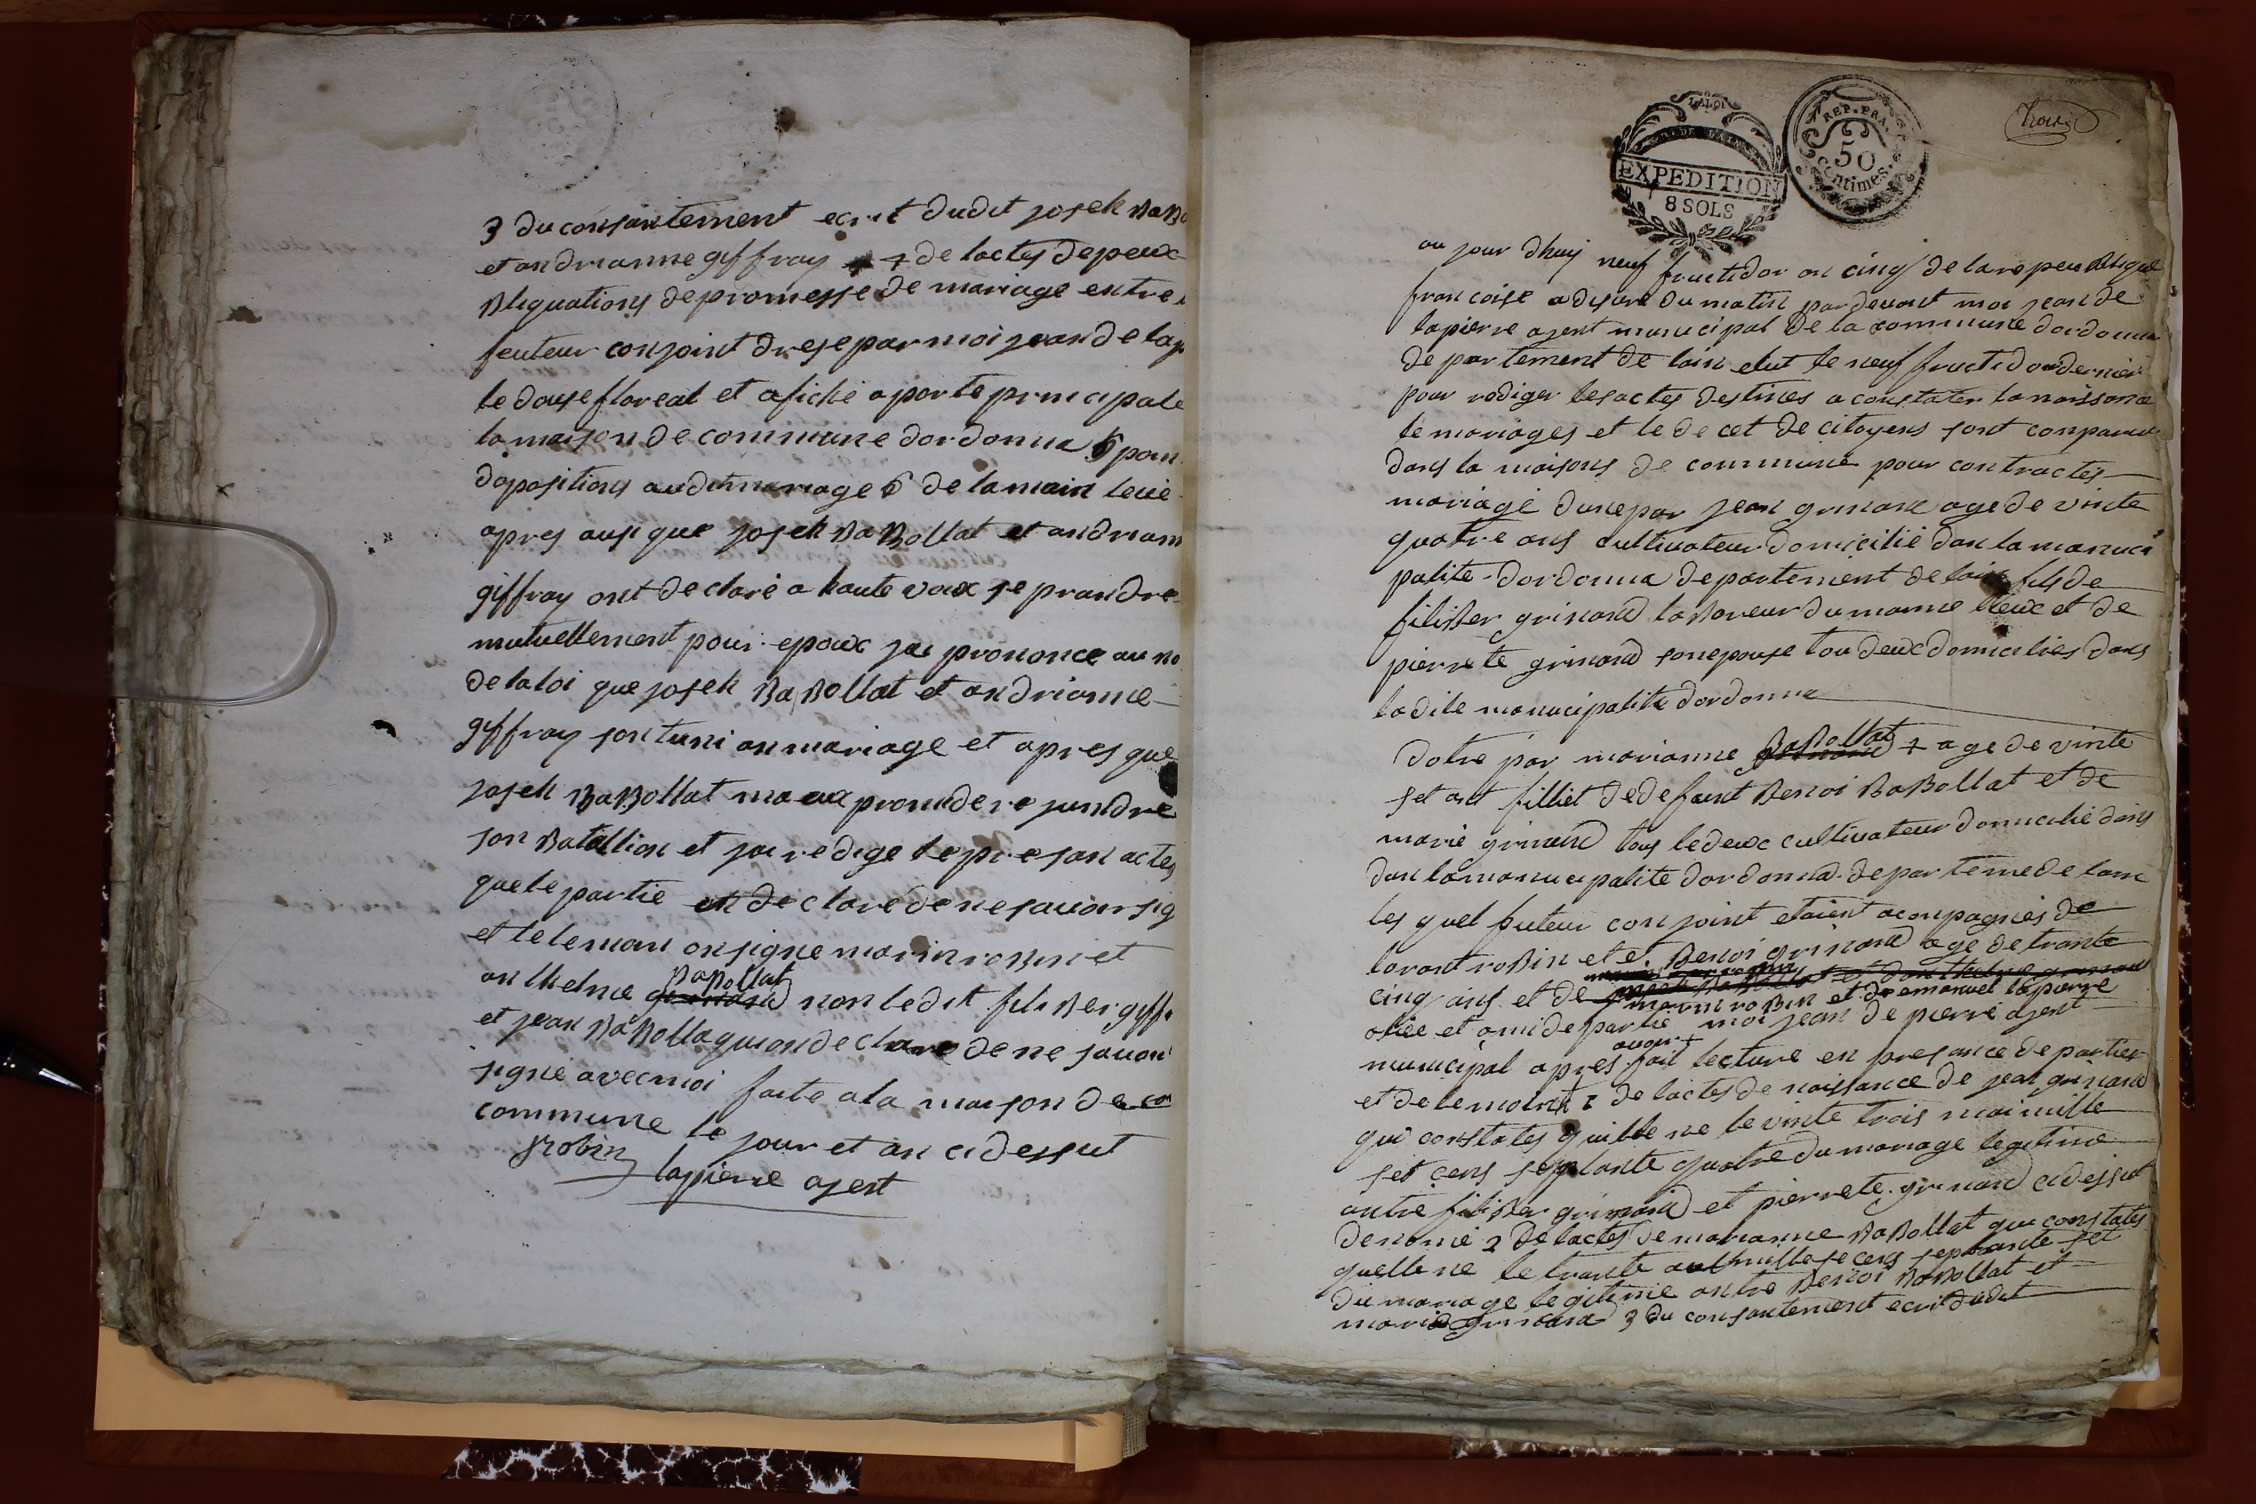 3 du consantement ecrit dudit josek BaBo
et andrianne giffray 4 de lactes depeux
Bliquations depromesse de mariage entre
feuteur conjoint drese par moi jean de lap
le douse floreal et afiche a porte principale
la maison de commune dordonna 5 poin
dopositions audit mariage 6 de la main leve
apres ausi que josek BaBollat et andriann
giffray ont declare a haute voix se prandre
mutuellement pour epoux jai prononce au no
de la loi que josek BaBollat et andrianne
giffray son tuni an mariage et apres que
josek BaBollat ma aux promi de re jundre
son Batallion et jai redige le presan actes
que le partie on declare de ne savoir sig
et le temoin on signe marin roBin et
anthelme grinand BaBollat non ledit filiBer giff
et jean BaBolla qui on declare de ne savoir
signe avec moi faite a la maison de co
commune le jour et an ci dessut
robin
lapierre agent
LA LOI
EXPEDITION
8 SOLS
REP. FRA.
50
Centimes.
Trois
au jour dhuy neuf fructidor an cinq de la repeublique
francoise a disure du matin par devant moi jean de
lapierre agent municipal de la commune dordonna
departement de lain elut le neuf fructidor dernier
pour rediger les actes destines a constater la naissance
le mariages et le decet de citoyens sont conparut
dans la maisons de commune pour contractes
mariage dune par jean grinand age de vinte
quatre ans cultivateur domicilié dan la manuci
palite dordonna departement de lain fils de
filiBer grinand laBoureur du mame lieux et de
pierrete grinand son epouse tou deux domicilies dans
ladite manucipalite dordonna
dotre par marianne grinand BaBollat + age de vinte
set ant filliet de defeunt Benoi BaBollat et de
marie grinand tous ledeux cultivateur domicilie dans
dan la manucipalite dordonna departeme de lain
les quel futeur conjoint etaient aconpagnies de
lorant roBin et e. Benoi grinand age de trante
cinq ans et de
marin roBin et de emanuel lapierre
aliee et ami de partie moi jean de pierre agent
municipal apres avoir + fait lecture en presance de parties
et de temoint 1 de lactes de naissance de jean grinand
qui constates quille ne le vinte trois mai mille
set cens septante quatre du mariage legitime
antre filiBer grinand et pierrete grinand ci dessut
denomie 2 de lactes de marianne BaBollat qui constates
quelle ne le trante mille se cens septante set
du mariage legitime antre Benoi BaBollat et
marie grinand 3 du consantement ecrit dudit